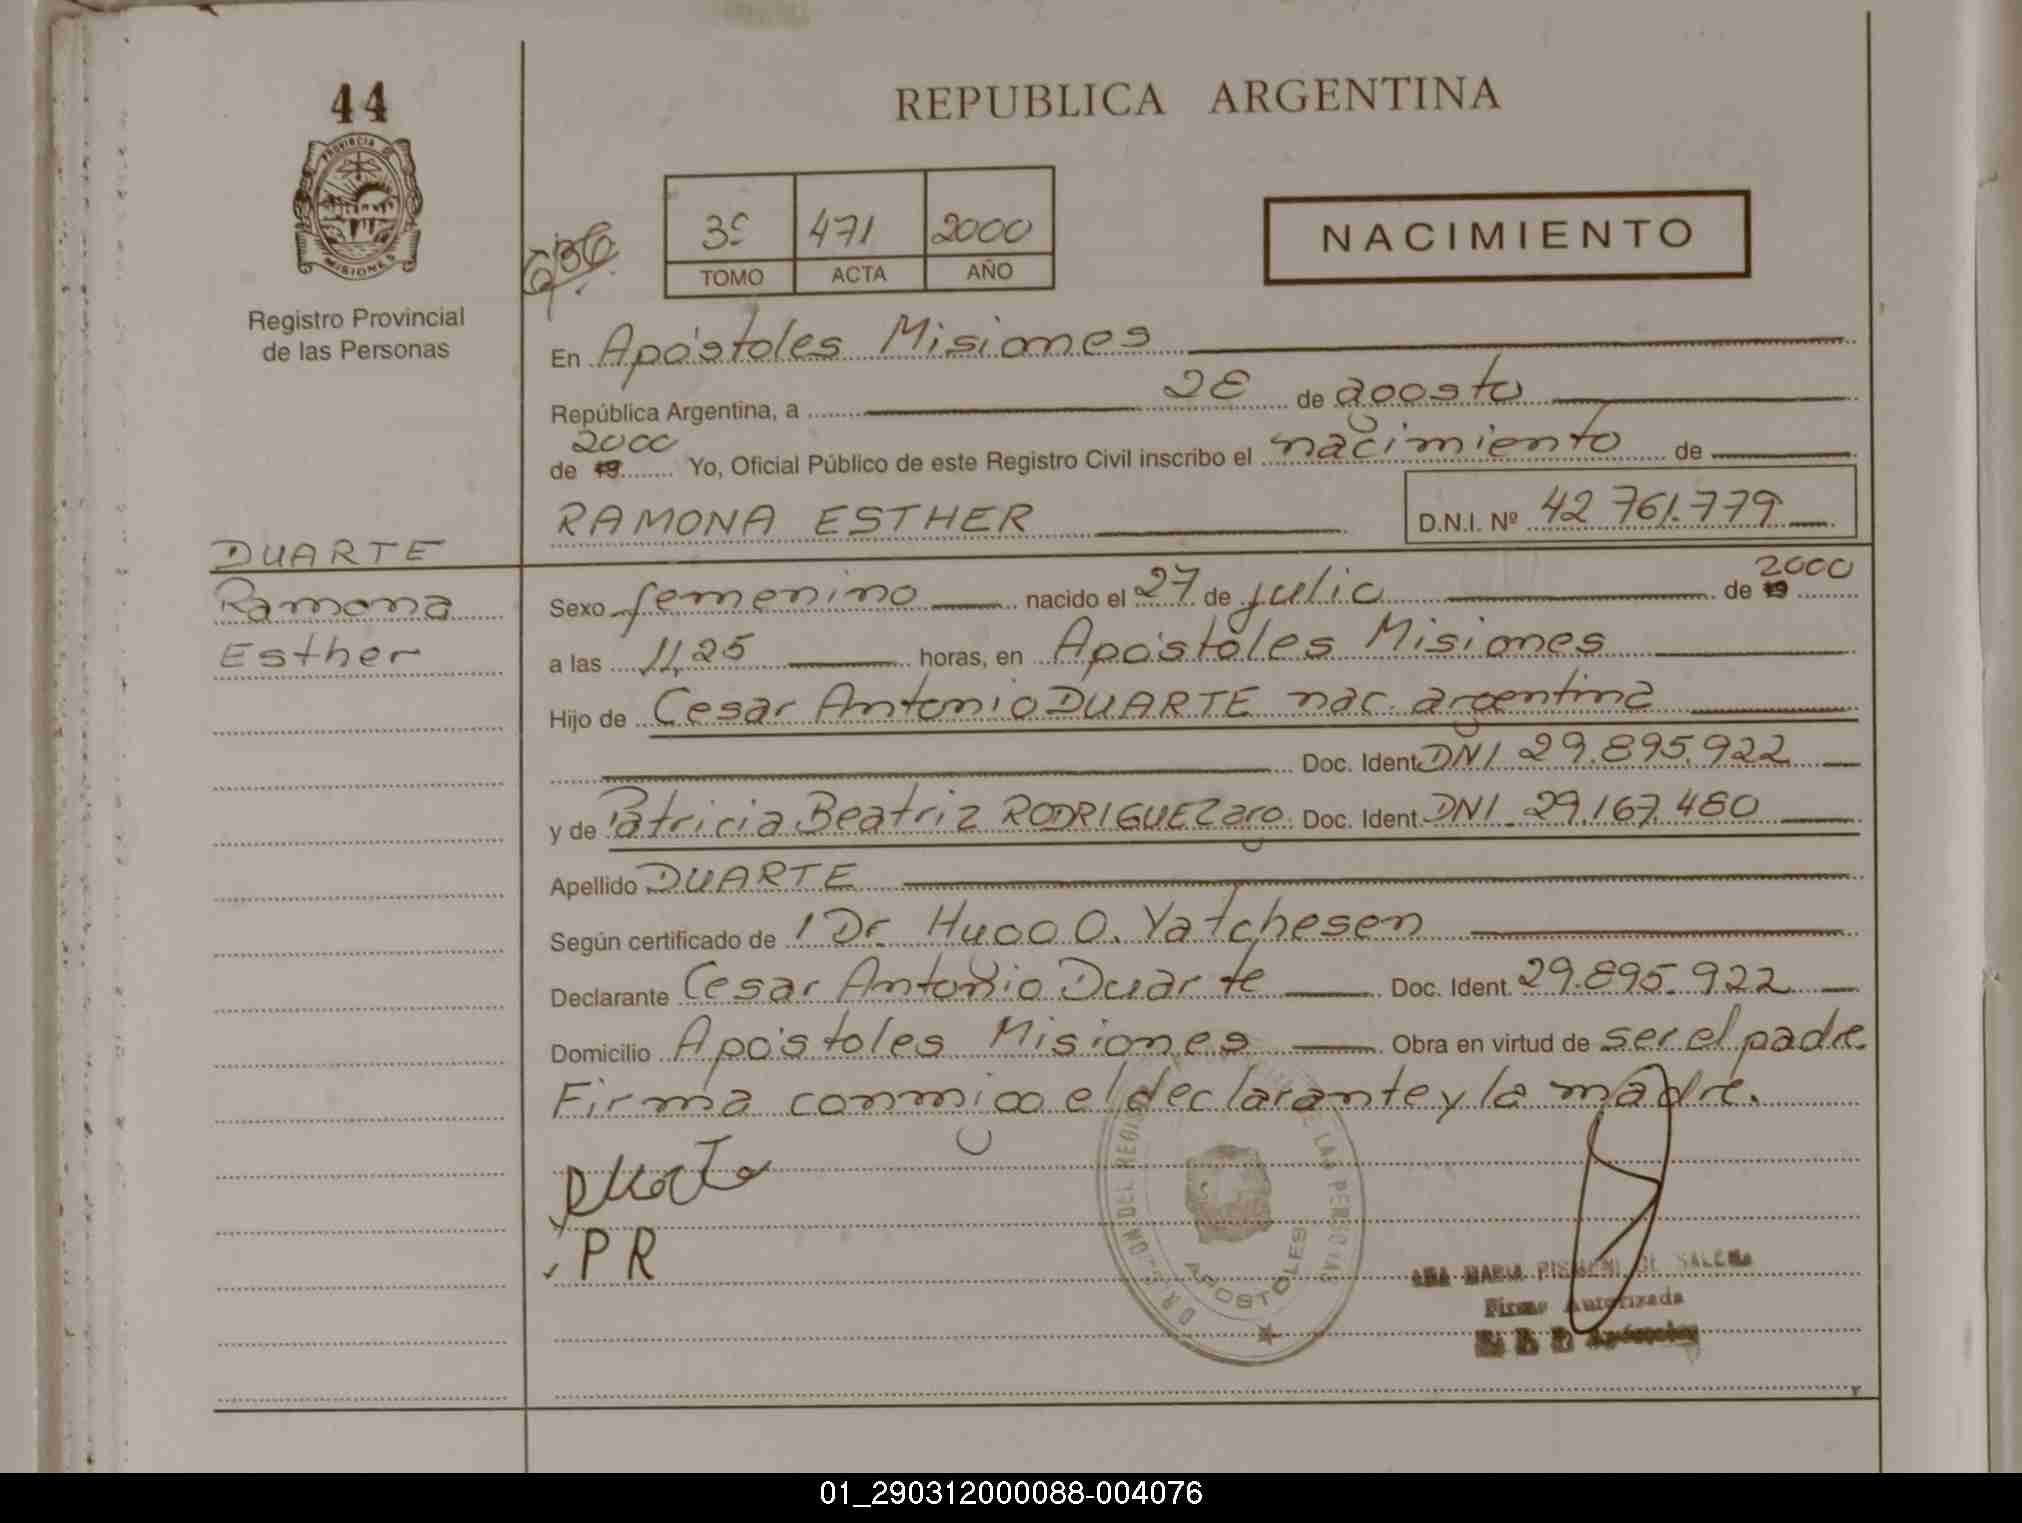 44
REPUBLICA ARGENTINA
PROVINCIA
MISIONES
Registro Provincial
de las Personas
3º 471 2000
TOMO ACTA AÑO
NACIMIENTO
En Apóstoles Misiones
República Argentina, a 28 de agosto
de 19 2000 Yo, Oficial Público de este Registro Civil inscribo el nacimiento de
RAMONA ESTHER D.N.I. Nº 42 761.779
DUARTE
Ramona
Esther
Sexo femenino nacido el 27 de julio de 19 2000
a las 11,25 horas, en Apóstoles Misiones
Hijo de Cesar Antonio DUARTE nac. argentina
Doc. Ident. DNI 29.895.922
y de Patricia Beatriz RODRIGUEZ arg. Doc. Ident. DNI 29.167.480
Apellido DUARTE
Según certificado de l Dr. Hugo O. Yatchesen
Declarante Cesar Antonio Duarte Doc. Ident. 29.895.922
Domicilio Apóstoles Misiones Obra en virtud de ser el padre.
Firma conmigo el declarante y la madre.
Duarte
PR
DIRECCION DEL REGISTRO DE LAS PERSONAS
APOSTOLES
ANA MARIA DE
Firma Autorizada
Apóstoles
01_290312000088-004076